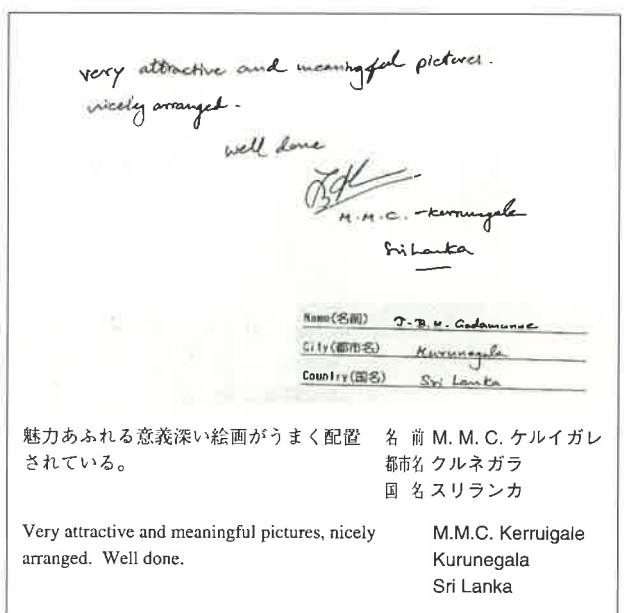 very attractive and meaningful pictures.
nicely arranged.
well done
M.M.C. - Kerrungale
Sri Lanka
Name(名前) J.B.M. Godamunne
City(都市名) Kurunegala
Country(国名) Sri Lanka
魅力あふれる意義深い絵画がうまく配置
されている。
名 前 M. M. C. ケルイガレ
都市名 クルネガラ
国 名 スリランカ
Very attractive and meaningful pictures, nicely
arranged. Well done.
M.M.C. Kerruigale
Kurunegala
Sri Lanka